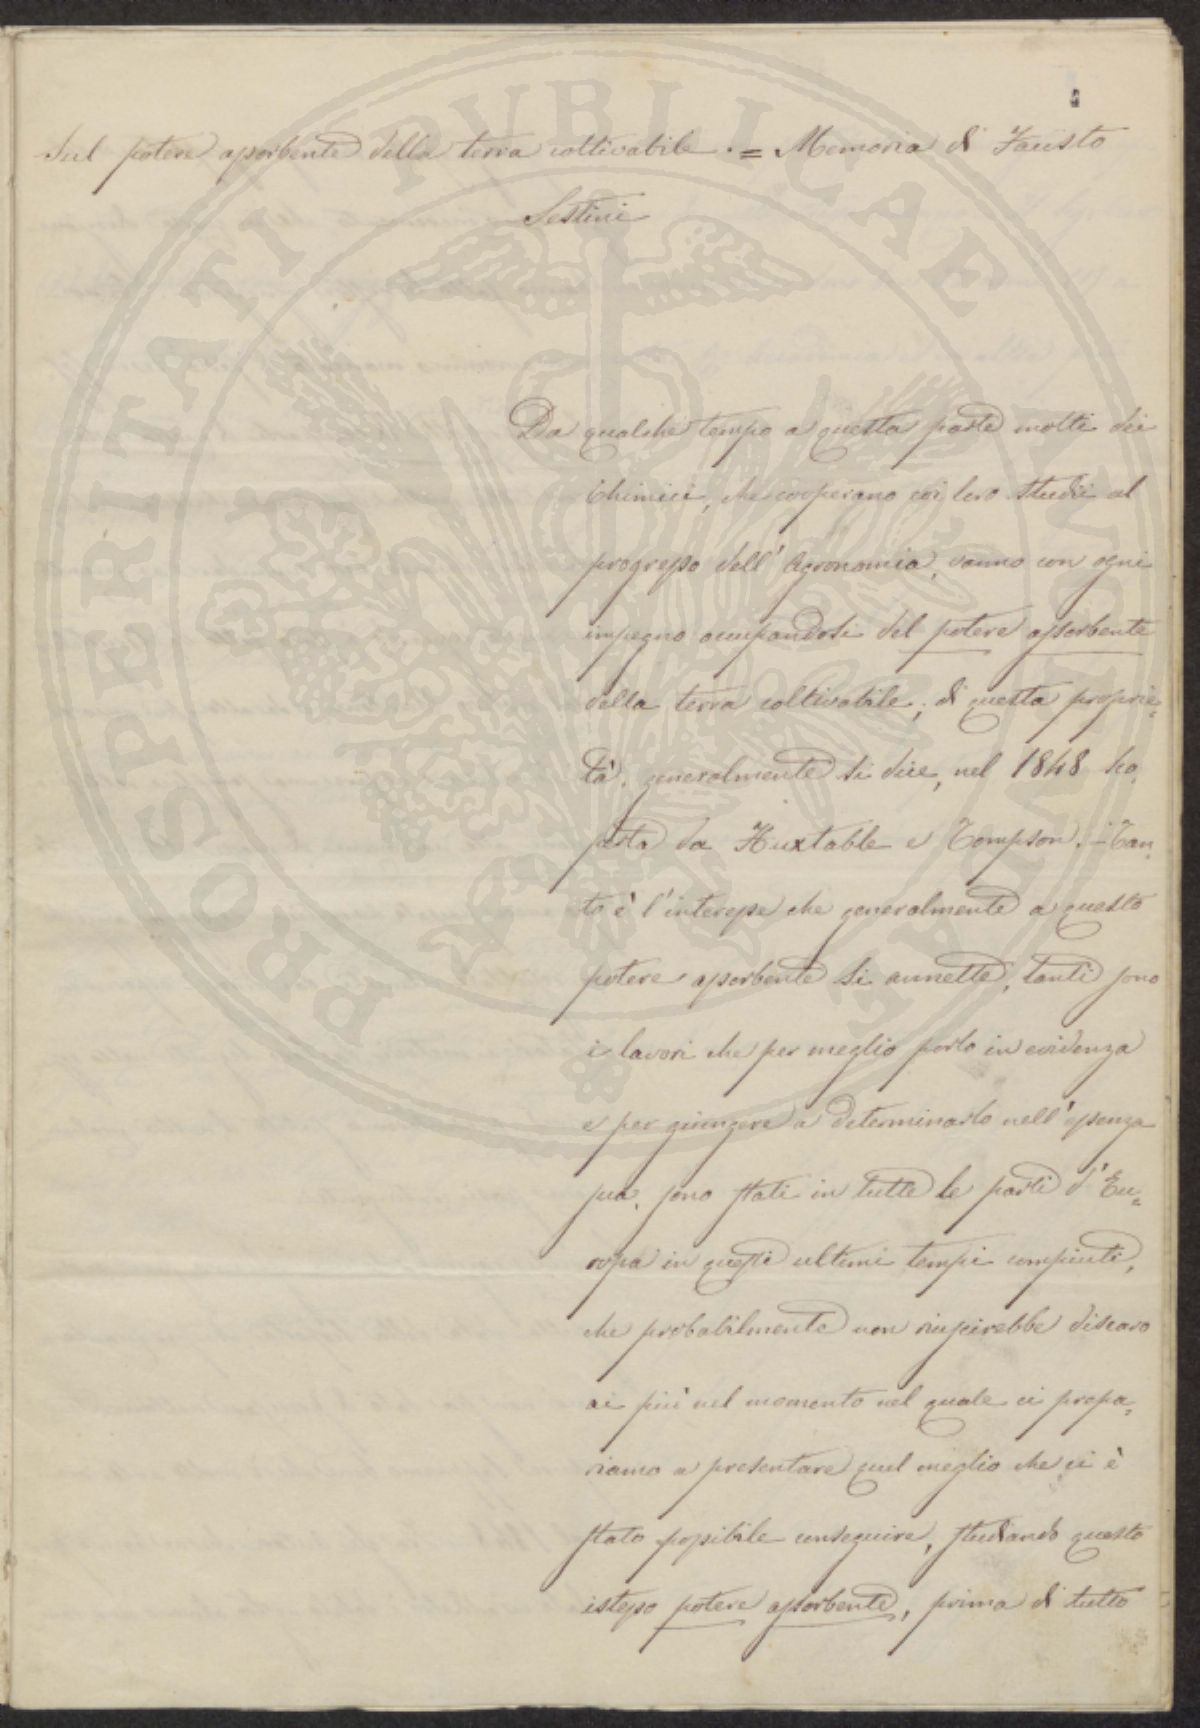 Sul potere assorbente della terra coltivabile. = Memoria di Fausto
Sestini
Da qualche tempo a questa parte molti dei
Chimici, che cooperano coi loro studii al
progresso dell'Agronomia, vanno con ogni
impegno occupandosi del potere assorbente
della terra coltivabile; di questa proprie=
tà, generalmente si dice, nel 1848 sco,
perta da Huxtable e Tompson. - Tan=
to è l'interesse che generalmente a questo
potere assorbente si annette, tanti sono
i lavori che per meglio porlo in evidenza
e per giungere a determinarlo nell'essenza
sua, sono stati in tutte le parti d'Eu=
ropa in questi ultimi tempi compiuti,
che probabilmente non riuscirebbe discaro
ai più nel momento nel quale ci prepa,
riamo a presentare quel meglio che ci è
stato possibile conseguire, studiando questo
istesso potere assorbente, prima di tutto
PROSPERITATI PVBLICAE